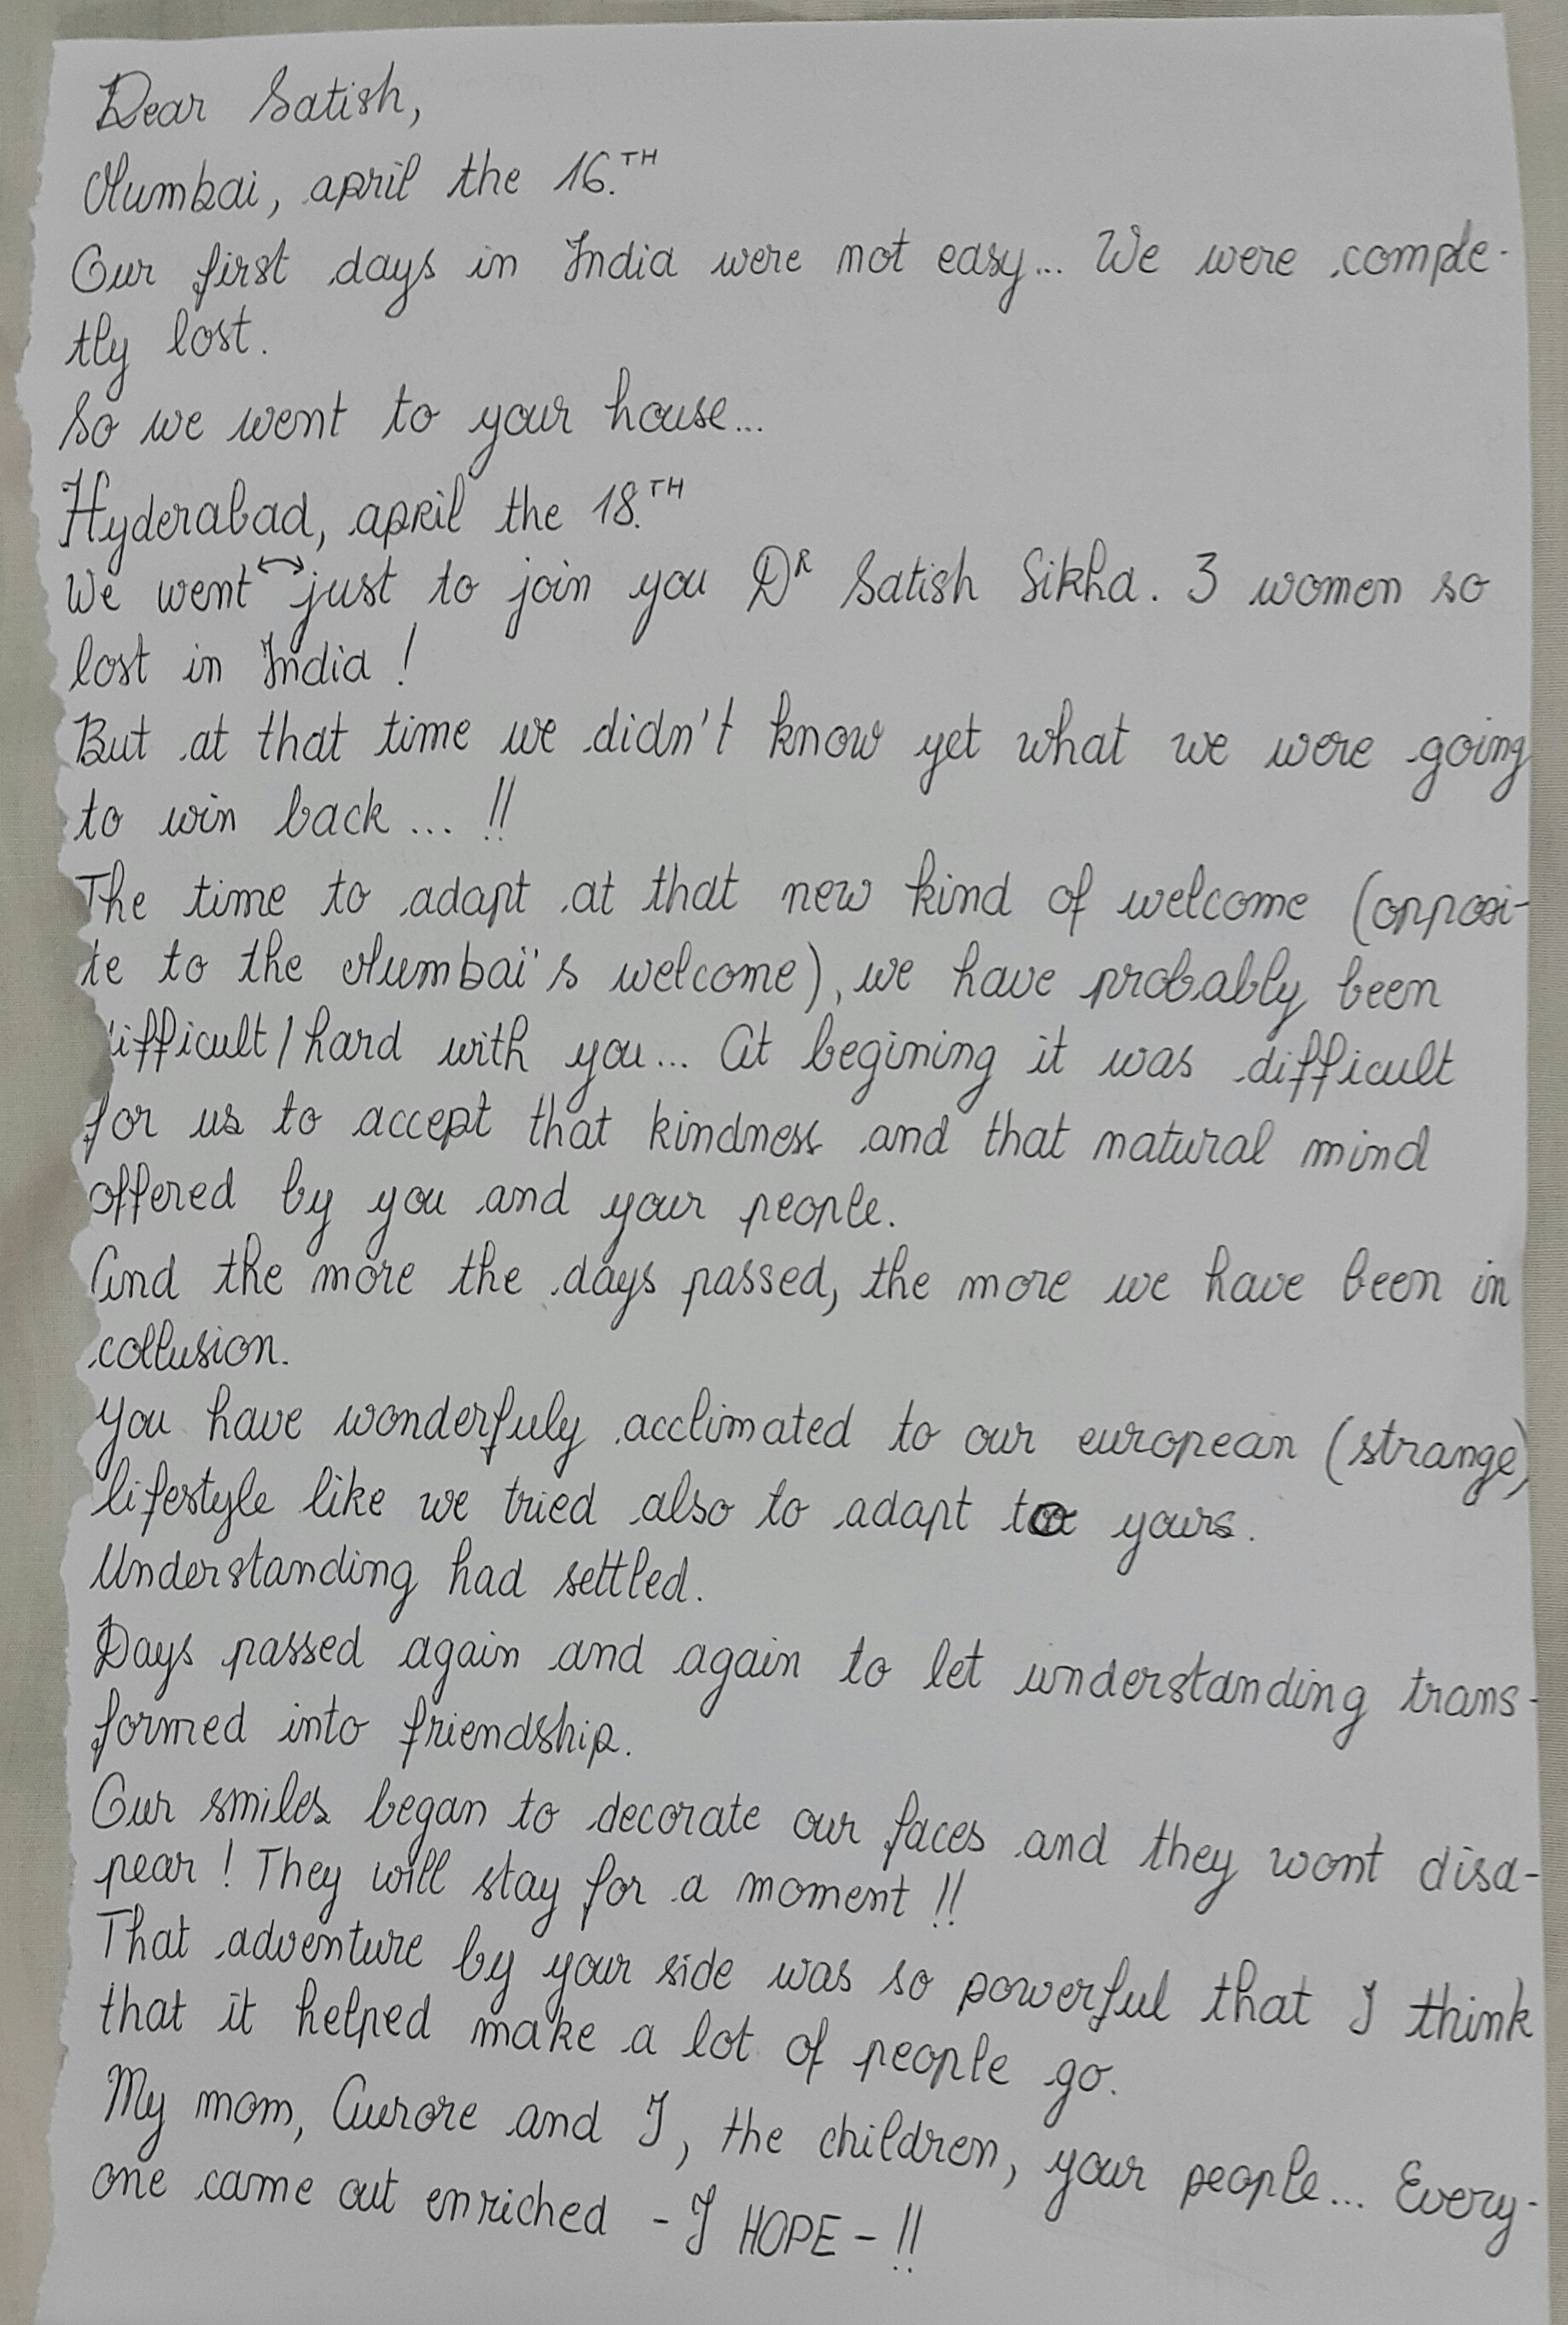 Dear Satish,
Mumbai, april the 16.TH
Our first days in India were not easy... We were comple-
tly lost.
So we went to your house...
Hyderabad, april the 18.TH
We went ↔ just to join you DR Satish Sikha. 3 women so
lost in India !
But at that time we didn't know yet what we were going
to win back ... !!
The time to adapt at that new kind of welcome (opposi-
te to the Mumbai's welcome), we have probably been
difficult / hard with you... At begining it was difficult
for us to accept that kindness and that natural mind
offered by you and your people.
And the more the days passed, the more we have been in
collusion.
You have wonderfuly acclimated to our european (strange)
lifestyle like we tried also to adapt to yours.
Understanding had settled.
Days passed again and again to let understanding trans-
formed into friendship.
Our smiles began to decorate our faces and they wont disa-
pear ! They will stay for a moment !!
That adventure by your side was so powerful that I think
that it helped make a lot of people go.
My mom, Aurore and I, the children, your people... Every-
one came out enriched - I HOPE - !!